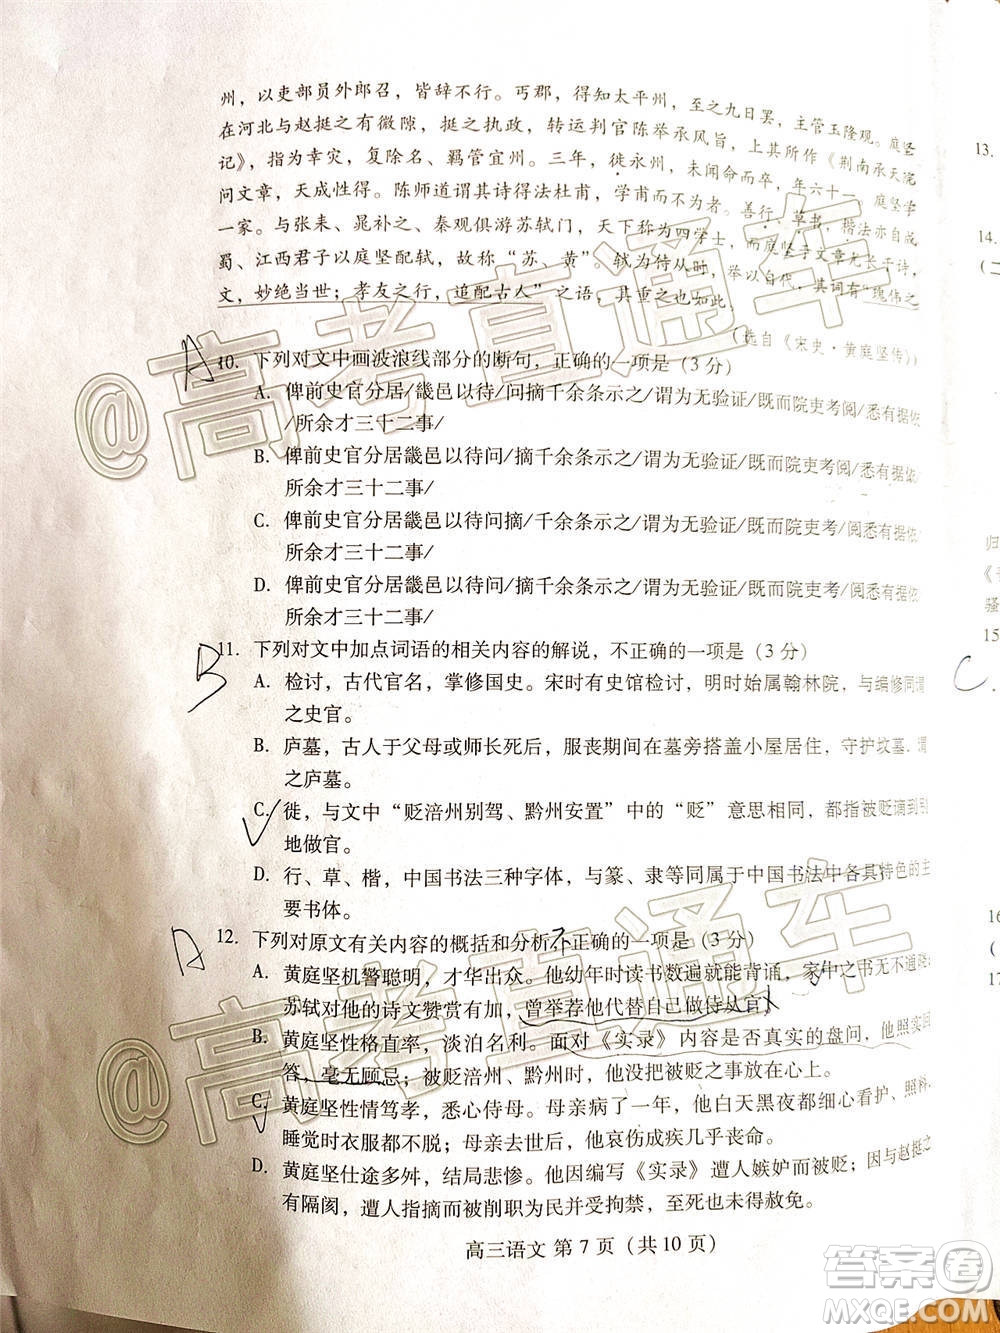 州，以吏部员外郎召，皆辞不行。丐郡，得知太平州，至之九日罢，主管玉隆观。庭坚
在河北与赵挺之有微隙，挺之执政，转运判官陈举承风旨，上其所作《荆南承天院
记》，指为幸灾，复除名、羁管宜州。三年，徙永州，未闻命而卒，年六十一。庭坚学
问文章，天成性得。陈师道谓其诗得法杜甫，学甫而不为者。善行、草书，楷法亦自成
一家。与张耒、晁补之、秦观俱游苏轼门，天下称为四学士，而庭坚于文章尤长于诗，
蜀、江西君子以庭坚配轼，故称“苏、黄”。轼为侍从时，举以自代，其词有“瑰伟之
文，妙绝当世；孝友之行，追配古人”之语，其重之也如此。
（选自《宋史·黄庭坚传》）
A
10．下列对文中画波浪线部分的断句，正确的一项是（3 分）
A．俾前史官分居/畿邑以待/问摘千余条示之/谓为无验证/既而院吏考阅/悉有据依
/所余才三十二事/
B．俾前史官分居畿邑以待问/摘千余条示之/谓为无验证/既而院吏考阅/悉有据依/
所余才三十二事/
C．俾前史官分居畿邑以待问摘/千余条示之/谓为无验证/既而院吏考/阅悉有据依/
所余才三十二事/
D．俾前史官分居/畿邑以待问/摘千余条示之/谓为无验证/既而院吏考/阅悉有据依/
所余才三十二事/
B
11．下列对文中加点词语的相关内容的解说，不正确的一项是（3 分）
A．检讨，古代官名，掌修国史。宋时有史馆检讨，明时始属翰林院，与编修同谓
之史官。
B．庐墓，古人于父母或师长死后，服丧期间在墓旁搭盖小屋居住，守护坟墓，谓
之庐墓。
C．徙，与文中“贬涪州别驾、黔州安置”中的“贬”意思相同，都指被贬谪到别
地做官。
D．行、草、楷，中国书法三种字体，与篆、隶等同属于中国书法中各具特色的主
要书体。
A
12．下列对原文有关内容的概括和分析不正确的一项是（3 分）
A．黄庭坚机警聪明，才华出众。他幼年时读书数遍就能背诵，家中之书无不通晓；
苏轼对他的诗文赞赏有加，曾举荐他代替自己做侍从官。
B．黄庭坚性格直率，淡泊名利。面对《实录》内容是否真实的盘问，他照实回
答，毫无顾忌；被贬涪州、黔州时，他没把被贬之事放在心上。
C．黄庭坚性情笃孝，悉心侍母。母亲病了一年，他白天黑夜都细心看护、照料，
睡觉时衣服都不脱；母亲去世后，他哀伤成疾几乎丧命。
D．黄庭坚仕途多舛，结局悲惨。他因编写《实录》遭人嫉妒而被贬；因与赵挺之
有隔阂，遭人指摘而被削职为民并受拘禁，至死也未得赦免。
高三语文 第 7 页（共 10 页）
13.
14.
（二
归
《
骚
15
C
16
（
17
@高考直通车
@高考直通车
答案卷
MXQE.COM